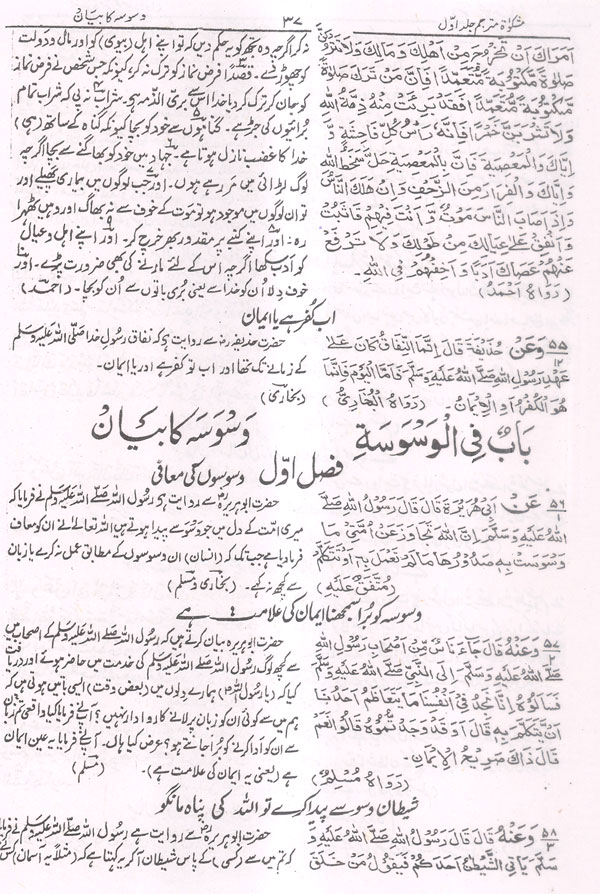 مشکوٰۃ مترجم جلد اوّل
۳۷
وسوسہ کا بیان
اَمَرَاكَ اَنْ تَخْرُجَ مِنْ اَهْلِكَ وَمَالِكَ وَلَا تَتْرُكَنَّ
صَلٰوةً مَّكْتُوْبَةً مُّتَعَمِّدًا فَاِنَّ مَنْ تَرَكَ صَلٰوةً
مَّكْتُوْبَةً مُّتَعَمِّدًا فَقَدْ بَرِئَتْ مِنْهُ ذِمَّةُ اللّٰهِ
وَلَا تَشْرَبَنَّ خَمْرًا فَاِنَّهُ رَاْسُ كُلِّ فَاحِشَةٍ وَّ
اِيَّاكَ وَالْمَعْصِيَةَ فَاِنَّ بِالْمَعْصِيَةِ حَلَّ سَخَطُ اللّٰهِ
وَاِيَّاكَ وَالْفِرَارَ مِنَ الزَّحْفِ وَاِنْ هَلَكَ النَّاسُ
وَاِذَا اَصَابَ النَّاسَ مَوْتٌ وَّاَنْتَ فِيْهِمْ فَاثْبُتْ
وَاَنْفِقْ عَلٰى عِيَالِكَ مِنْ طَوْلِكَ وَلَا تَرْفَعْ
عَنْهُمْ عَصَاكَ اَدَبًا وَّاَخِفْهُمْ فِي اللّٰهِ۔
(رَوَاهُ اَحْمَدُ)
نہ کر اگرچہ وہ تجھ کو یہ حکم دیں کہ تو اپنے اہل (بیوی) کو اور مال و دولت
کو چھوڑ دے۔ قصدًا فرض نماز کو ترک نہ کر، کیونکہ جس شخص نے فرض نماز
کو جان کر ترک کر دیا خدا اس سے بری الذمہ ہے۔ شراب نہ پی کہ شراب تمام
برائیوں کی جڑ ہے۔ گناہوں سے خود کو بچا کیونکہ گناہ کے ساتھ (ہی)
خدا کا غضب نازل ہوتا ہے۔ جہاد میں خود کو بھاگنے سے بچا اگرچہ
لوگ لڑائی میں مر رہے ہوں۔ اور جب لوگوں میں بیماری پھیلے اور
تو ان لوگوں میں موجود ہو تو موت کے خوف سے نہ بھاگ اور وہیں ٹھہرا
رہ۔ اور اپنے کنبے پر مقدور بھر خرچ کر۔ اور اپنے اہل و عیال
کو ادب سکھا اگرچہ اس کے لئے مارنے کی بھی ضرورت پڑے۔ اور
خوف دلا ان کو خدا سے یعنی بُری باتوں سے ان کو بچا۔ (احمد)
اب کفر ہے یا ایمان
۵۵ وَعَنْ حُذَيْفَةَ قَالَ اِنَّمَا النِّفَاقُ كَانَ عَلٰى
۱۲
عَهْدِ رَسُوْلِ اللّٰهِ صَلَّى اللّٰهُ عَلَيْهِ وَسَلَّمَ فَاَمَّا الْيَوْمَ فَاِنَّمَا
هُوَ الْكُفْرُ اَوِ الْاِيْمَانُ۔ (رَوَاهُ الْبُخَارِيُّ)
حضرت حذیفہ رضؓ سے روایت ہے کہ نفاق رسولِ خدا صلّی اللہ علیہ وسلم
کے زمانے تک تھا اور اب تو کفر ہے اور یا ایمان۔
(بخاری)
بَابٌ فِي الْوَسْوَسَةِ
وسوسہ کا بیان
فصل اوّل
وسوسوں کی معافی
۵۶ عَنْ اَبِيْ هُرَيْرَةَ قَالَ قَالَ رَسُوْلُ اللّٰهِ صَلَّى
۱
اللّٰهُ عَلَيْهِ وَسَلَّمَ اِنَّ اللّٰهَ تَجَاوَزَ عَنْ اُمَّتِيْ مَا
وَسْوَسَتْ بِهٖ صُدُوْرُهَا مَا لَمْ تَعْمَلْ بِهٖ اَوْ تَتَكَلَّمْ
(مُتَّفَقٌ عَلَيْهِ)
حضرت ابوہریرہؓ سے روایت ہے رسول اللہ صلے اللہ علیہ وسلم نے فرمایا کہ
میری امت کے دل میں جو وسوسے پیدا ہوتے ہیں اللہ تعالےٰ نے ان کو معاف
فرما دیا ہے جب تک کہ (انسان) ان وسوسوں کے مطابق عمل نہ کرے یا زبان
سے کچھ نہ کہے۔ (بخاری و مسلم)
وسوسہ کو برا سمجھنا ایمان کی علامت ہے
۵۷ وَعَنْهُ قَالَ جَآءَ نَاسٌ مِّنْ اَصْحَابِ رَسُوْلِ اللّٰهِ
۲
صَلَّى اللّٰهُ عَلَيْهِ وَسَلَّمَ اِلَى النَّبِيِّ صَلَّى اللّٰهُ عَلَيْهِ وَسَلَّمَ
فَسَاَلُوْهُ اِنَّا نَجِدُ فِيْ اَنْفُسِنَا مَا يَتَعَاظَمُ اَحَدُنَا
اَنْ يَّتَكَلَّمَ بِهٖ قَالَ اَوَ قَدْ وَجَدْتُّمُوْهُ قَالُوْا نَعَمْ
قَالَ ذَاكَ صَرِيْحُ الْاِيْمَانِ۔
(رَوَاهُ مُسْلِمٌ)
حضرت ابوہریرہ بیان کرتے ہیں کہ رسول اللہ صلے اللہ علیہ وسلم کے اصحاب میں
سے کچھ لوگ رسول اللہ صلے اللہ علیہ وسلم کی خدمت میں حاضر ہوئے اور دریافت
کیا کہ (یا رسول اللہ) ہمارے دلوں میں (بعض وقت) ایسی باتیں ہوتی ہیں کہ
ہم میں سے کوئی ان کو زبان پر لانے کا روادار نہیں؟ آپ نے فرمایا کیا واقعی تم زبان
سے ان کو ادا کرنے کو بُرا جانتے ہو؟ عرض کیا ہاں۔ آپ نے فرمایا یہ عین ایمان
ہے (یعنی یہ ایمان کی علامت ہے)۔ (مسلم)
شیطان وسوسے پیدا کرے تو اللہ کی پناہ مانگو
۵۸ وَعَنْهُ قَالَ قَالَ رَسُوْلُ اللّٰهِ صَلَّى اللّٰهُ عَلَيْهِ وَ
۳
سَلَّمَ يَاْتِي الشَّيْطٰنُ اَحَدَكُمْ فَيَقُوْلُ مَنْ خَلَقَ
حضرت ابوہریرہؓ سے روایت ہے رسول اللہ صلے اللہ علیہ وسلم نے فرمایا
کہ تم میں سے (کسی) کے پاس شیطان آکر یہ کہتا ہے کہ (مثلاً یہ آسمان) کس نے